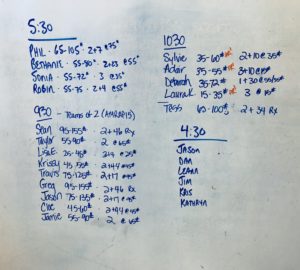 5:30
PHIL · 65-105# 2+7 @75#
BETHANIE · 55-80# · 2+23 @55#
SONIA · 55-72# · 3 @35#
ROBIN · 55-75 · 2+4 @55#
930 - Teams of 2 (AMRAP15)
Sean 95-155# · 2+46 Rx
Taylor 55-90# · 2 @65#
Lisa E 25-45#
Krissy 45-55#
Travis 75-125# · 2+17 @95#
Greg 95-155# · 2+46 Rx
Jason 75-135# · 2+17 @95#
Cloe 45-60# · 2+44 @45#
Jamie 55-90# · 2 @65#
1030
Sylvie 35-60# 2+10 @35#
Adair 35-55# 3+10 @15#
Deborah 35-72# 1+30 @55/35#
Laura K 15-35# 3 @15#
Tess 60-100# 2+34 Rx
4:30
JASON
DAN
LEANN
JIM
KRIS
KATHRYN